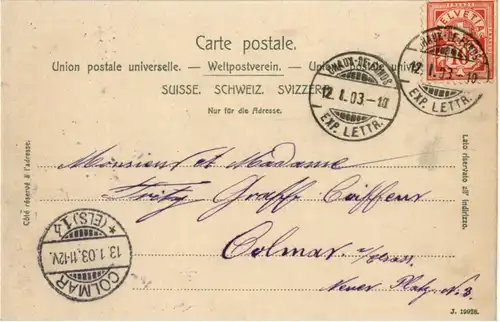 Carte postale.
Union postale universelle. — Weltpostverein. — Unione postale universale.
SUISSE. SCHWEIZ. SVIZZERA.
Nur für die Adresse.
HELVETIA
10
CHAUX-DE-FONDS
12. I. 03-10
EXP. LETTR.
CHAUX-DE-FONDS
12. I. 03-10
EXP. LETTR.
Côté réservé à l'adresse.
Lato riservato all' indirizzo.
Monsieur et Madame
Fritz Graff Coiffeur
Colmar
Neuer Platz N. 3.
* (ELS) 1
13.1.03.11-12V.
COLMAR
J. 19928.